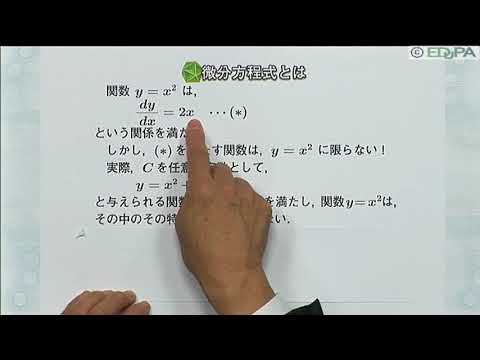 © EDUPA
微分方程式とは
関数 y = x² は,
dy/dx = 2x ⋯(*)
という関係を満た
しかし, (*) を す関数は, y = x² に限らない!
実際, C を任意 として,
y = x² +
と与えられる関数 を満たし, 関数 y=x²は,
その中のその特 い.